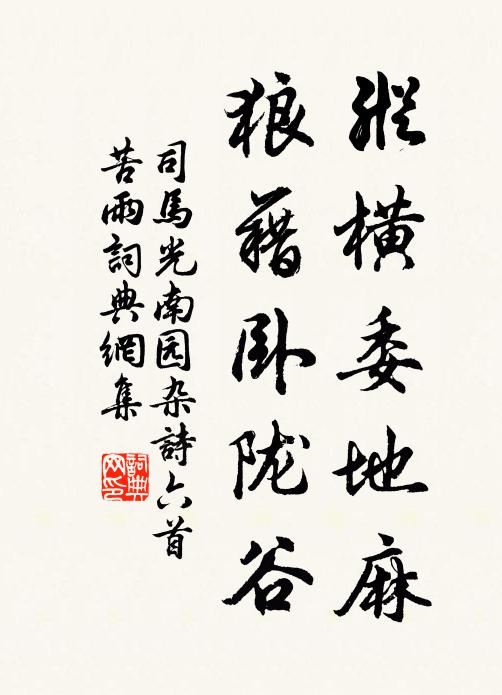 縱橫委地麻
狼藉卧陇谷
司馬光南园杂詩六首
苦雨詞典網集
詞典网印